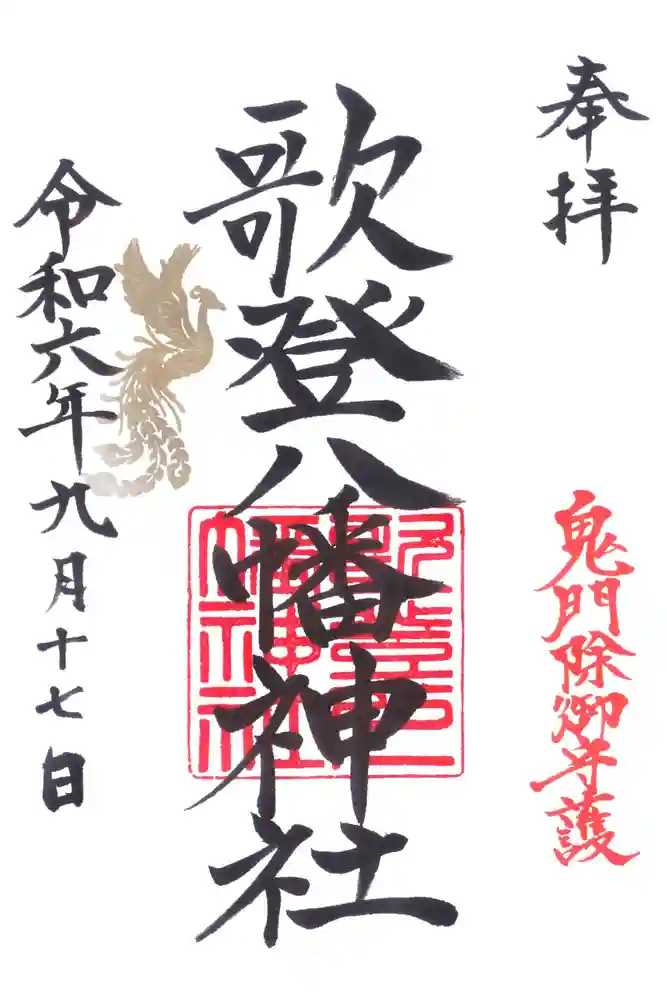 奉拝
鬼門除御守護
歌登八幡神社
令和六年九月十七日